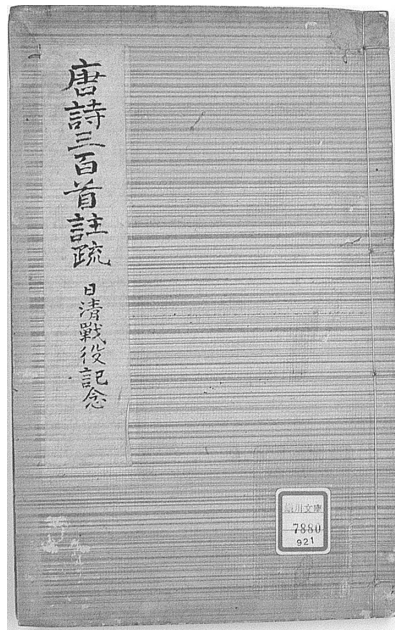 唐詩三百首註疏
日清戰役記念
川文庫
7880
921